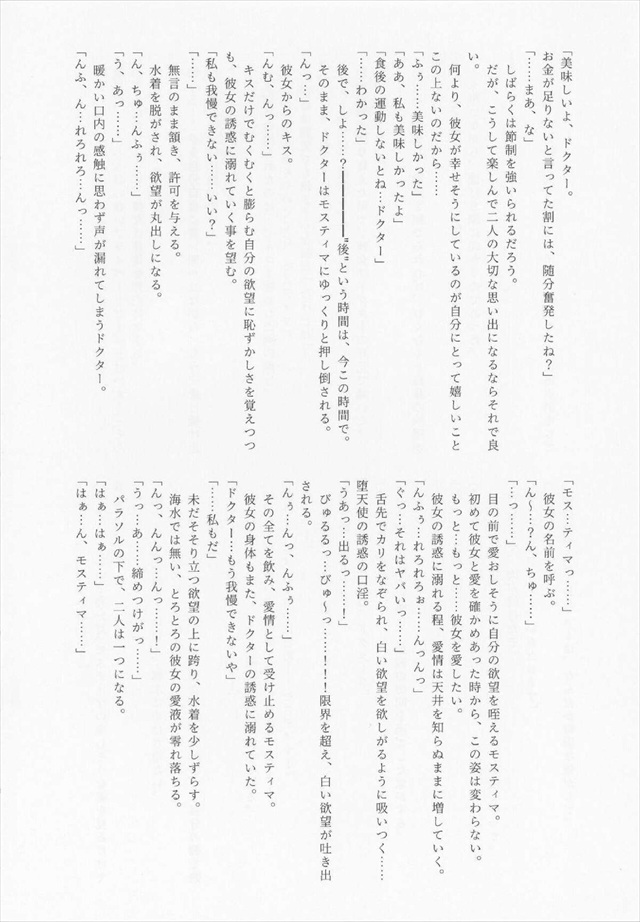 「美味しいよ、ドクター。
お金が足りないと言ってた割には、随分奮発したね?」
「……まあ、な」
しばらくは節制を強いられるだろう。
だが、こうして楽しんで二人の大切な思い出になるならそれで良
い。
何より、彼女が幸せそうにしているのが自分にとって嬉しいこと
この上ないのだから……
「ふぅ……美味しかった」
「ああ、私も美味しかったよ」
「食後の運動しないとね…ドクター」
「……わかった」
後で、しよ……?━━━━━"後"という時間は、今この時間で。
そのまま、ドクターはモスティマにゆっくりと押し倒される。
「んっ…」
彼女からのキス。
「んむ、んっ……」
キスだけでむくむくと膨らむ自分の欲望に恥ずかしさを覚えつつ
も、彼女の誘惑に溺れていく事を望む。
「私も我慢できない……いい?」
「……」
無言のまま頷き、許可を与える。
水着を脱がされ、欲望が丸出しになる。
「ん、ちゅ…んふぅ……」
「う、あっ……」
暖かい口内の感触に思わず声が漏れてしまうドクター。
「んふ、ん…れろれろ…んっ……」
「モス…ティマっ……」
彼女の名前を呼ぶ。
「ん～…?ん、ちゅ……」
「…っ……」
目の前で愛おしそうに自分の欲望を咥えるモスティマ。
初めて彼女と愛を確かめあった時から、この姿は変わらない。
もっと…もっと……彼女を愛したい。
彼女の誘惑に溺れる程、愛情は天井を知らぬままに増していく。
「んふぅ…れろれろぉ……んっんっ」
「ぐっ…それはヤバいっ……」
舌先でカリをなぞられ、白い欲望を欲しがるように吸いつく……
堕天使の誘惑の口淫。
「うあっ…出るっ……!」
びゅるるっ…びゅ～っ……!!!限界を超え、白い欲望が吐き出
される。
「んぅ…んっ、んふぅ……」
その全てを飲み、愛情として受け止めるモスティマ。
彼女の身体もまた、ドクターの誘惑に溺れていた。
「ドクター…もう我慢できないや」
「……私もだ」
未だそそり立つ欲望の上に跨り、水着を少しずらす。
海水では無い、とろとろの彼女の愛液が零れ落ちる。
「んっ、んんっ…んっ……!」
「うっ…あ……締めつけがっ……」
パラソルの下で、二人は一つになる。
「はぁ…はぁ……」
「はぁ…ん、モスティマ……」